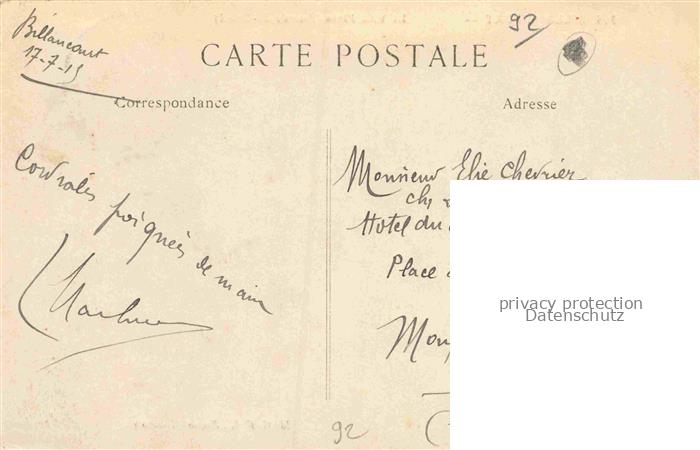 Billancourt
17-7-15
92
CARTE POSTALE
Correspondance
Adresse
Cordiales poignées de main
Monsieur Elie Chevrier
Hotel du
Place
privacy protection
Datenschutz
92